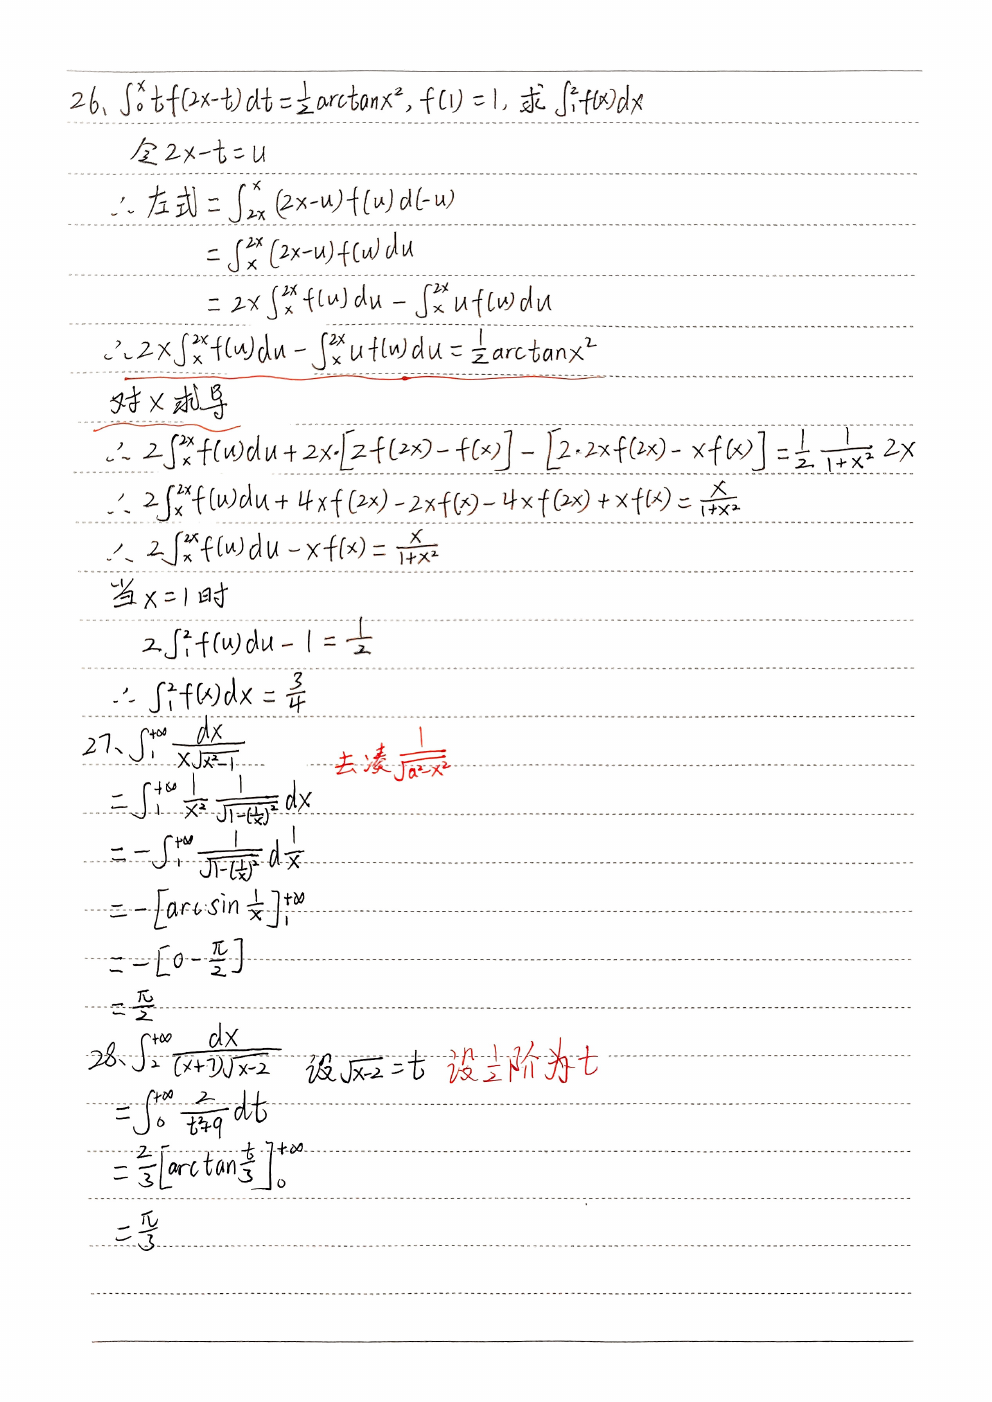 26、∫₀ˣ tf(2x-t)dt = 1/2 arctanx², f(1)=1, 求 ∫₁² f(x)dx
令2x-t=u
∴ 左式 = ∫_{2x}^{x} (2x-u)f(u)d(-u)
= ∫_{x}^{2x} (2x-u)f(u)du
= 2x∫_{x}^{2x} f(u)du - ∫_{x}^{2x} uf(u)du
∴ 2x∫_{x}^{2x} f(u)du - ∫_{x}^{2x} uf(u)du = 1/2 arctanx²
对x求导
∴ 2∫_{x}^{2x} f(u)du + 2x·[2f(2x)-f(x)] - [2·2xf(2x)-xf(x)] = 1/2 1/(1+x²) 2x
∴ 2∫_{x}^{2x} f(u)du + 4xf(2x) - 2xf(x) - 4xf(2x) + xf(x) = x/(1+x²)
∴ 2∫_{x}^{2x} f(u)du - xf(x) = x/(1+x²)
当x=1时
2∫₁² f(u)du - 1 = 1/2
∴ ∫₁² f(x)dx = 3/4
27、∫₁^{+∞} dx/(x√(x²-1)) 去凑 1/√(a²-x²)
= ∫₁^{+∞} 1/x² 1/√(1-(1/x)²) dx
= -∫₁^{+∞} 1/√(1-(1/x)²) d 1/x
= -[arcsin 1/x]₁^{+∞}
= -[0-π/2]
= π/2
28、∫₂^{+∞} dx/((x+7)√(x-2)) 设√(x-2)=t 设1/2阶为t
= ∫₀^{+∞} 2/(t²+9) dt
= 2/3[arctan t/3]₀^{+∞}
= π/3